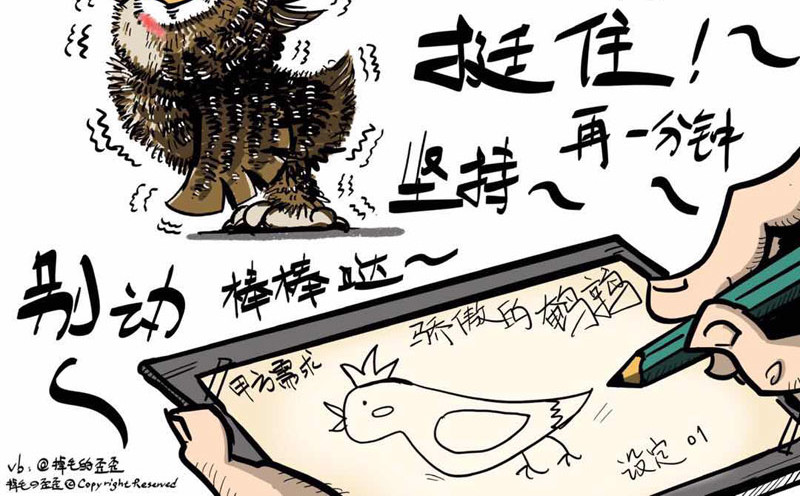 挺住！～
再一分钟～
坚持～
别动～
棒棒哒～
骄傲的鹌鹑
甲方需求
设定01
vb:@掉毛的歪歪
掉毛の歪歪@Copyright Reserved